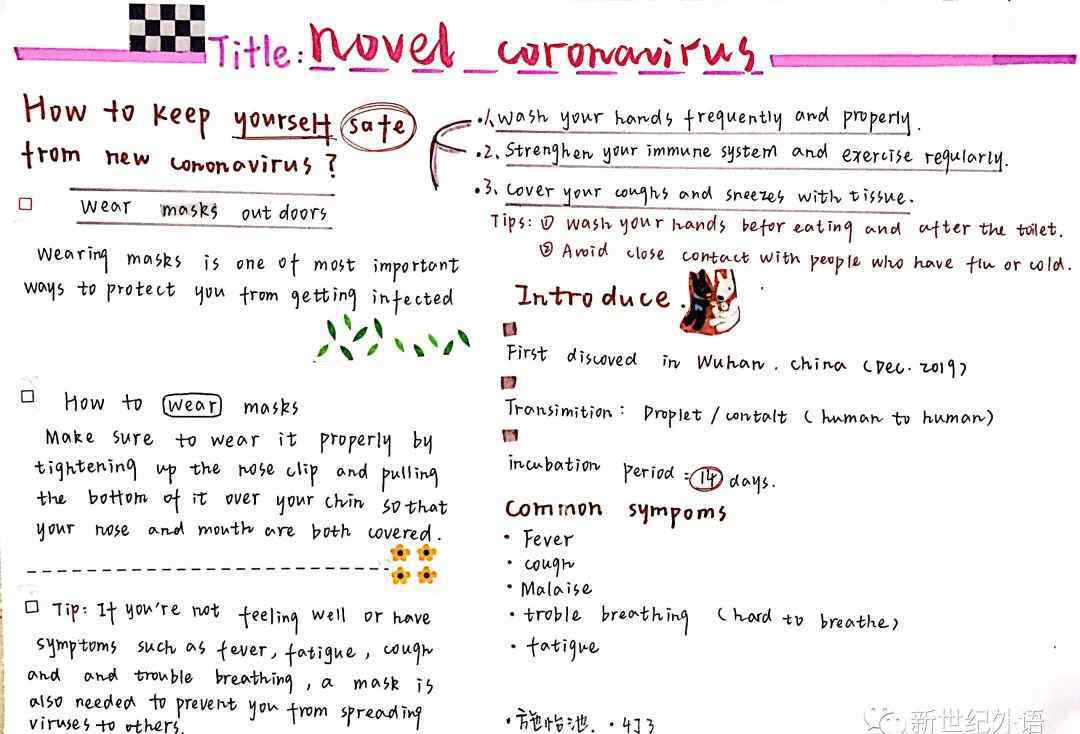 Title: Novel coronavirus
How to keep yourself safe
from new cononavirus?
wear masks out doors
wearing masks is one of most important
ways to protect you from getting infected
How to wear masks
Make sure to wear it properly by
tightening up the nose clip and pulling
the bottom of it over your chin so that
your nose and mouth are both covered.
Tip: If you're not feeling well or have
symptoms such as fever, fatigue, cough
and and trouble breathing, a mask is
also needed to prevent you from spreading
viruses to others.
1. wash your hands frequently and properly.
2. Strenghen your immune system and exercise regularly.
3. cover your coughs and sneezes with tissue.
Tips: ① wash your hands befor eating and after the toilet.
② Avoid close contact with people who have flu or cold.
Introduce.
First discoved in Wuhan. china (Dec. 2019)
Transimition: Droplet / contalt (human to human)
incubation period: 14 days.
Common sympoms
· Fever
· cough
· Malaise
· troble breathing (hard to breathe)
· fatigue
·施怡池.
新世纪外语